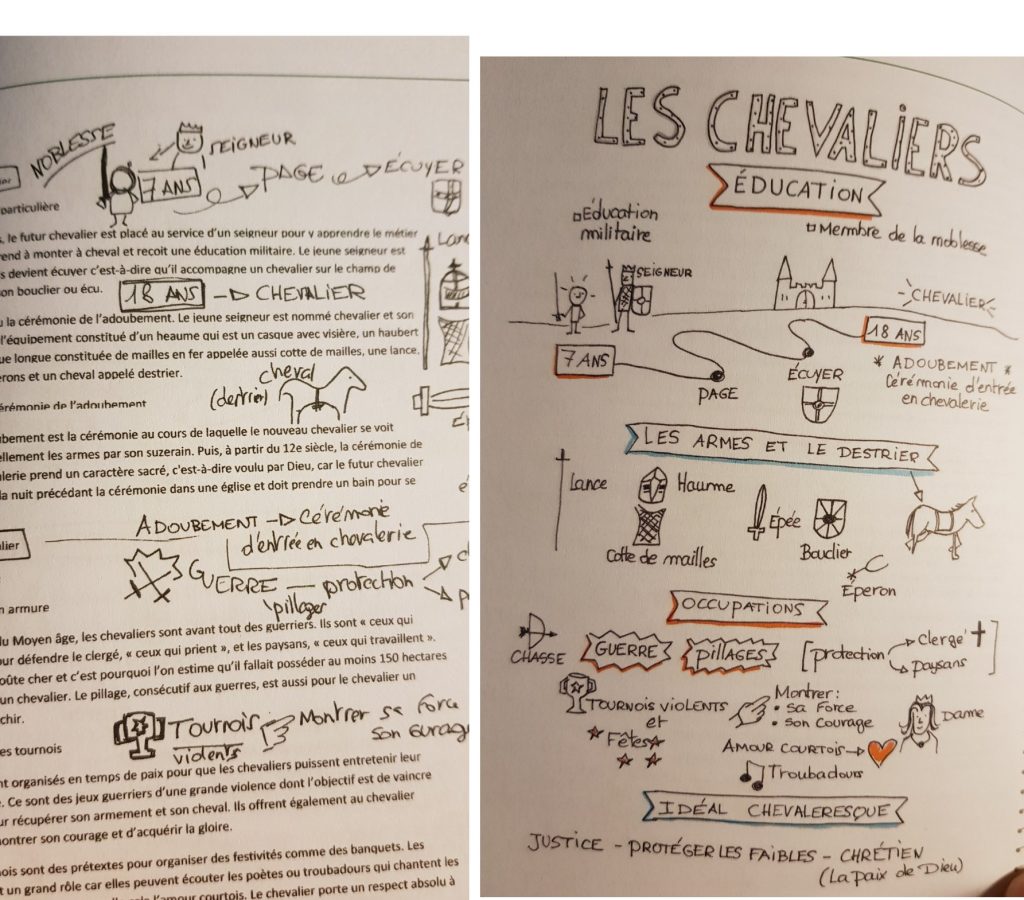 NOBLESSE
SEIGNEUR
7 ANS
PAGE
ÉCUYER
particulière
, le futur chevalier est placé au service d'un seigneur pour y apprendre le métier
end à monter à cheval et recoit une éducation militaire. Le jeune seigneur est
s devient écuyer c'est-à-dire qu'il accompagne un chevalier sur le champ de
on bouclier ou écu.
Lanc
18 ANS → CHEVALIER
u la cérémonie de l'adoubement. Le jeune seigneur est nommé chevalier et son
l'équipement constitué d'un heaume qui est un casque avec visière, un haubert
ue longue constituée de mailles en fer appelée aussi cotte de mailles, une lance,
erons et un cheval appelé destrier.
cheval
(destrier)
érémonie de l'adoubement
ubement est la cérémonie au cours de laquelle le nouveau chevalier se voit
ellement les armes par son suzerain. Puis, à partir du 12e siècle, la cérémonie de
alerie prend un caractère sacré, c'est-à-dire voulu par Dieu, car le futur chevalier
la nuit précédant la cérémonie dans une église et doit prendre un bain pour se
ADOUBEMENT → Cérémonie
d'entrée en chevalerie
alier
GUERRE — protection
pillager
n armure
du Moyen âge, les chevaliers sont avant tout des guerriers. Ils sont « ceux qui
our défendre le clergé, « ceux qui prient », et les paysans, « ceux qui travaillent ».
oûte cher et c'est pourquoi l'on estime qu'il fallait posséder au moins 150 hectares
un chevalier. Le pillage, consécutif aux guerres, est aussi pour le chevalier un
chir.
Tournois
violents
Montrer sa force
son courag
es tournois
nt organisés en temps de paix pour que les chevaliers puissent entretenir leur
. Ce sont des jeux guerriers d'une grande violence dont l'objectif est de vaincre
ur récupérer son armement et son cheval. Ils offrent également au chevalier
montrer son courage et d'acquérir la gloire.
nois sont des prétextes pour organiser des festivités comme des banquets. Les
t un grand rôle car elles peuvent écouter les poètes ou troubadours qui chantent les
l'amour courtois. Le chevalier porte un respect absolu à
LES CHEVALIERS
ÉDUCATION
Education
militaire
Membre de la noblesse
SEIGNEUR
CHEVALIER
7 ANS
18 ANS
PAGE
ÉCUYER
* ADOUBEMENT *
Cérémonie d'entrée
en chevalerie
LES ARMES ET LE DESTRIER
Lance
Haume
Épée
Cotte de mailles
Bouclier
Éperon
OCCUPATIONS
CHASSE
GUERRE
PILLAGES
[protection
Clergé
paysans
]
TOURNOIS VIOLENTS
et
Fêtes
Montrer :
• sa Force
• son courage
Dame
AMOUR COURTOIS →
Troubadours
IDÉAL CHEVALERESQUE
JUSTICE - PROTÉGER LES FAIBLES - CHRÉTIEN
(La paix de Dieu)